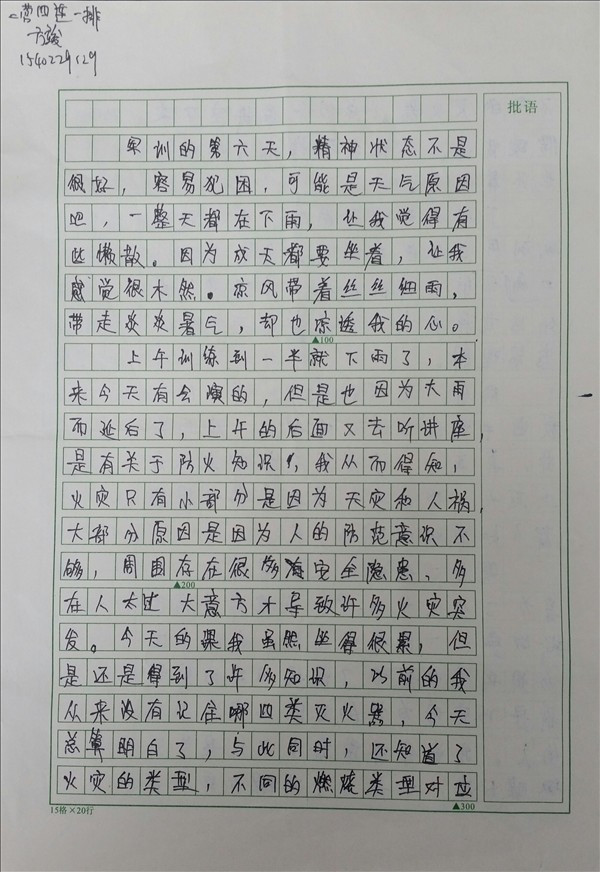 二营四连一排
方骏
1540229129
批语
军训的第六天，精神状态不是
很好，容易犯困，可能是天气原因
吧，一整天都在下雨，让我觉得有
些懒散。因为成天都要坐着，让我
感觉很木然。凉风带着丝丝细雨，
带走炎炎暑气，却也凉透我的心。
▲100
上午训练到一半就下雨了，本
来今天有会演的，但是也因为大雨
而延后了，上午的后面又去听讲座，
是有关于防火知识，我从而得知，
火灾只有小部分是因为天灾和人祸，
大部分原因是因为人的防范意识不
够，周围存在很多安全隐患、多
▲200
在人太过大意方才导致许多火灾突
发。今天的课我虽然坐得很累，但
是还是得到了许多知识，以前的我
从来没有记住哪四类灭火器，今天
总算明白了，与此同时，还知道了
火灾的类型，不同的燃烧类型对应
15格×20行
▲300